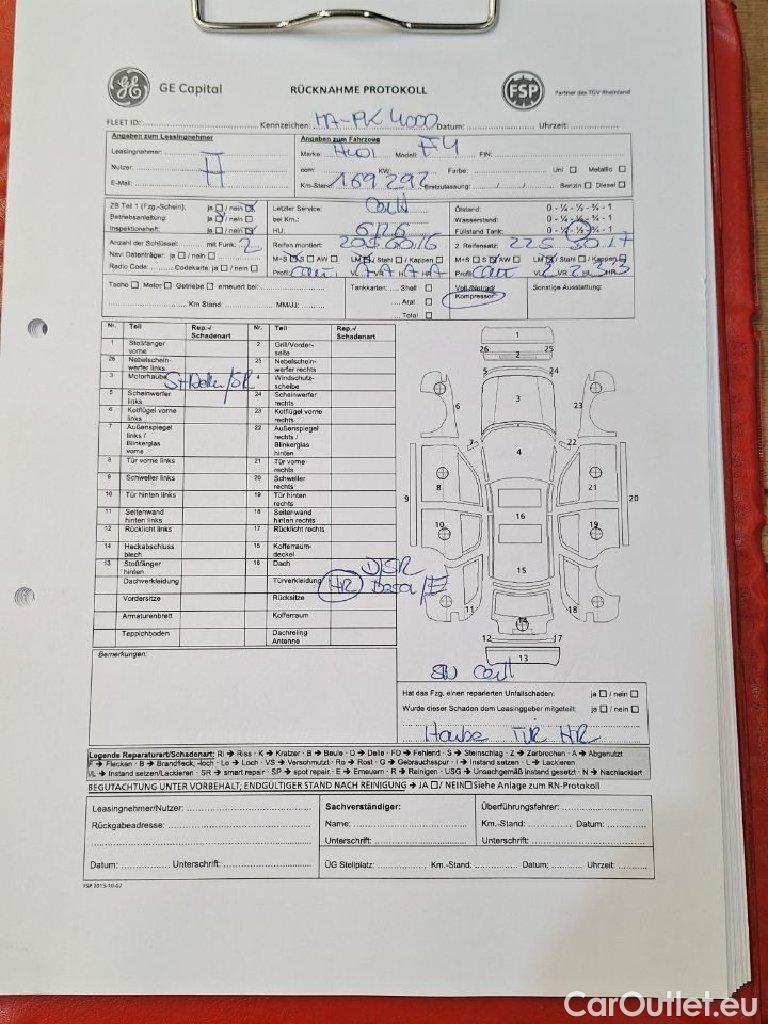 GE Capital RÜCKNAHME PROTOKOLL FSP Partner des TÜV Rheinland
FLEET ID: Kennzeichen: MA-PK 4000 Datum: Uhrzeit:
Angaben zum Leasingnehmer
Leasingnehmer:
Nutzer:
E-Mail:
Angaben zum Fahrzeug
Marke: Audi Modell: FIN:
ccm: KW: Farbe: Uni Metallic
Km-Stand: 169 292 Erstzulassung: / / Benzin Diesel
ZB Teil 1 (Fzg.-Schein): ja / nein
Betriebsanleitung: ja / nein
Inspektionsheft: ja / nein
Anzahl der Schlüssel: mit Funk: 2
Navi Datenträger: ja / nein
Radio Code: Codekarte: ja / nein
Letzter Service:
bei Km.:
HU:
Reifen montiert: 205.60.16
M+S S AW LM Stahl Kappen
Profil:
Ölstand: 0 - ¼ - ½ - ¾ - 1
Wasserstand: 0 - ¼ - ½ - ¾ - 1
Füllstand Tank: 0 - ¼ - ½ - ¾ - 1
2. Reifensatz: 225.50.17
M+S S AW LM Stahl Kappen
Profil:
Tacho Motor Getriebe erneuert bei:
Km Stand: MM/JJ:
Tankkarten: Shell
Aral
Total
Voll-/Notrad/
Kompressor
Sonstige Ausstattung:
Nr. Teil Rep.-/ Schadenart Nr. Teil Rep.-/ Schadenart
1 Stoßfänger vorne 2 Grill/Vorder-seite
26 Nebelschein-werfer links 25 Nebelschein-werfer rechts
3 Motorhaube 4 Windschutz-scheibe
5 Scheinwerfer links 24 Scheinwerfer rechts
6 Kotflügel vorne links 23 Kotflügel vorne rechts
7 Außenspiegel links / Blinkerglas vorne 22 Außenspiegel rechts / Blinkerglas hinten
8 Tür vorne links 21 Tür vorne rechts
9 Schweller links 20 Schweller rechts
10 Tür hinten links 19 Tür hinten rechts
11 Seitenwand hinten links 18 Seitenwand hinten rechts
12 Rücklicht links 17 Rücklicht rechts
14 Heckabschluss blech 15 Kofferraum-deckel
13 Stoßfänger hinten 16 Dach
Dachverkleidung Türverkleidung HR
Vordersitze Rücksitze
Armaturenbrett Kofferraum
Teppichboden Dachreling Antenne
1
26 25
2
5 24
6 3 23
7 22
4
8 21
9 20
16
10 19
15
11 18
14
12 17
13
Bemerkungen:
Hat das Fzg. einen reparierten Unfallschaden: ja / nein
Wurde dieser Schaden dem Leasinggeber mitgeteilt: ja / nein
Haube TÜR HR
Legende Reparaturart/Schadenart: RI ➔ Riss · K ➔ Kratzer · B ➔ Beule · D ➔ Delle · FD ➔ Fehlend · S ➔ Steinschlag · Z ➔ Zerbrochen · A ➔ Abgenutzt
F ➔ Flecken · B ➔ Brandfleck, -loch · Lo ➔ Loch · VS ➔ Verschmutzt · Ro ➔ Rost · G ➔ Gebrauchsspur · I ➔ Instand setzen · L ➔ Lackieren
I/L ➔ Instand setzen/Lackieren · SR ➔ smart repair · SP ➔ spot repair · E ➔ Erneuern · R ➔ Reinigen · USG ➔ Unsachgemäß instand gesetzt · N ➔ Nachlackiert
BEGUTACHTUNG UNTER VORBEHALT; ENDGÜLTIGER STAND NACH REINIGUNG ➔ JA / NEIN Siehe Anlage zum RN-Protokoll
Leasingnehmer/Nutzer:
Rückgabeadresse:
Datum: Unterschrift:
Sachverständiger:
Name:
Unterschrift:
Überführungsfahrer:
Km.-Stand: Datum:
Unterschrift:
ÜG Stellplatz: Km.-Stand: Datum: Uhrzeit:
FSP 2015-10-02
CarOutlet.eu